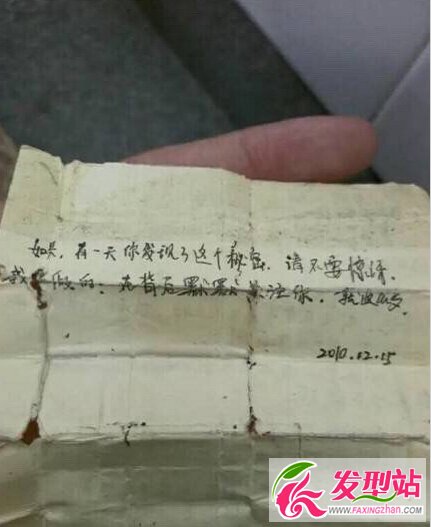 如果,有一天你发现了这个秘密,请不要惊讶。
我 做的,在背后默默 关注你,
2010.12.15
发型站
WWW.FAXINGZHAN.COM